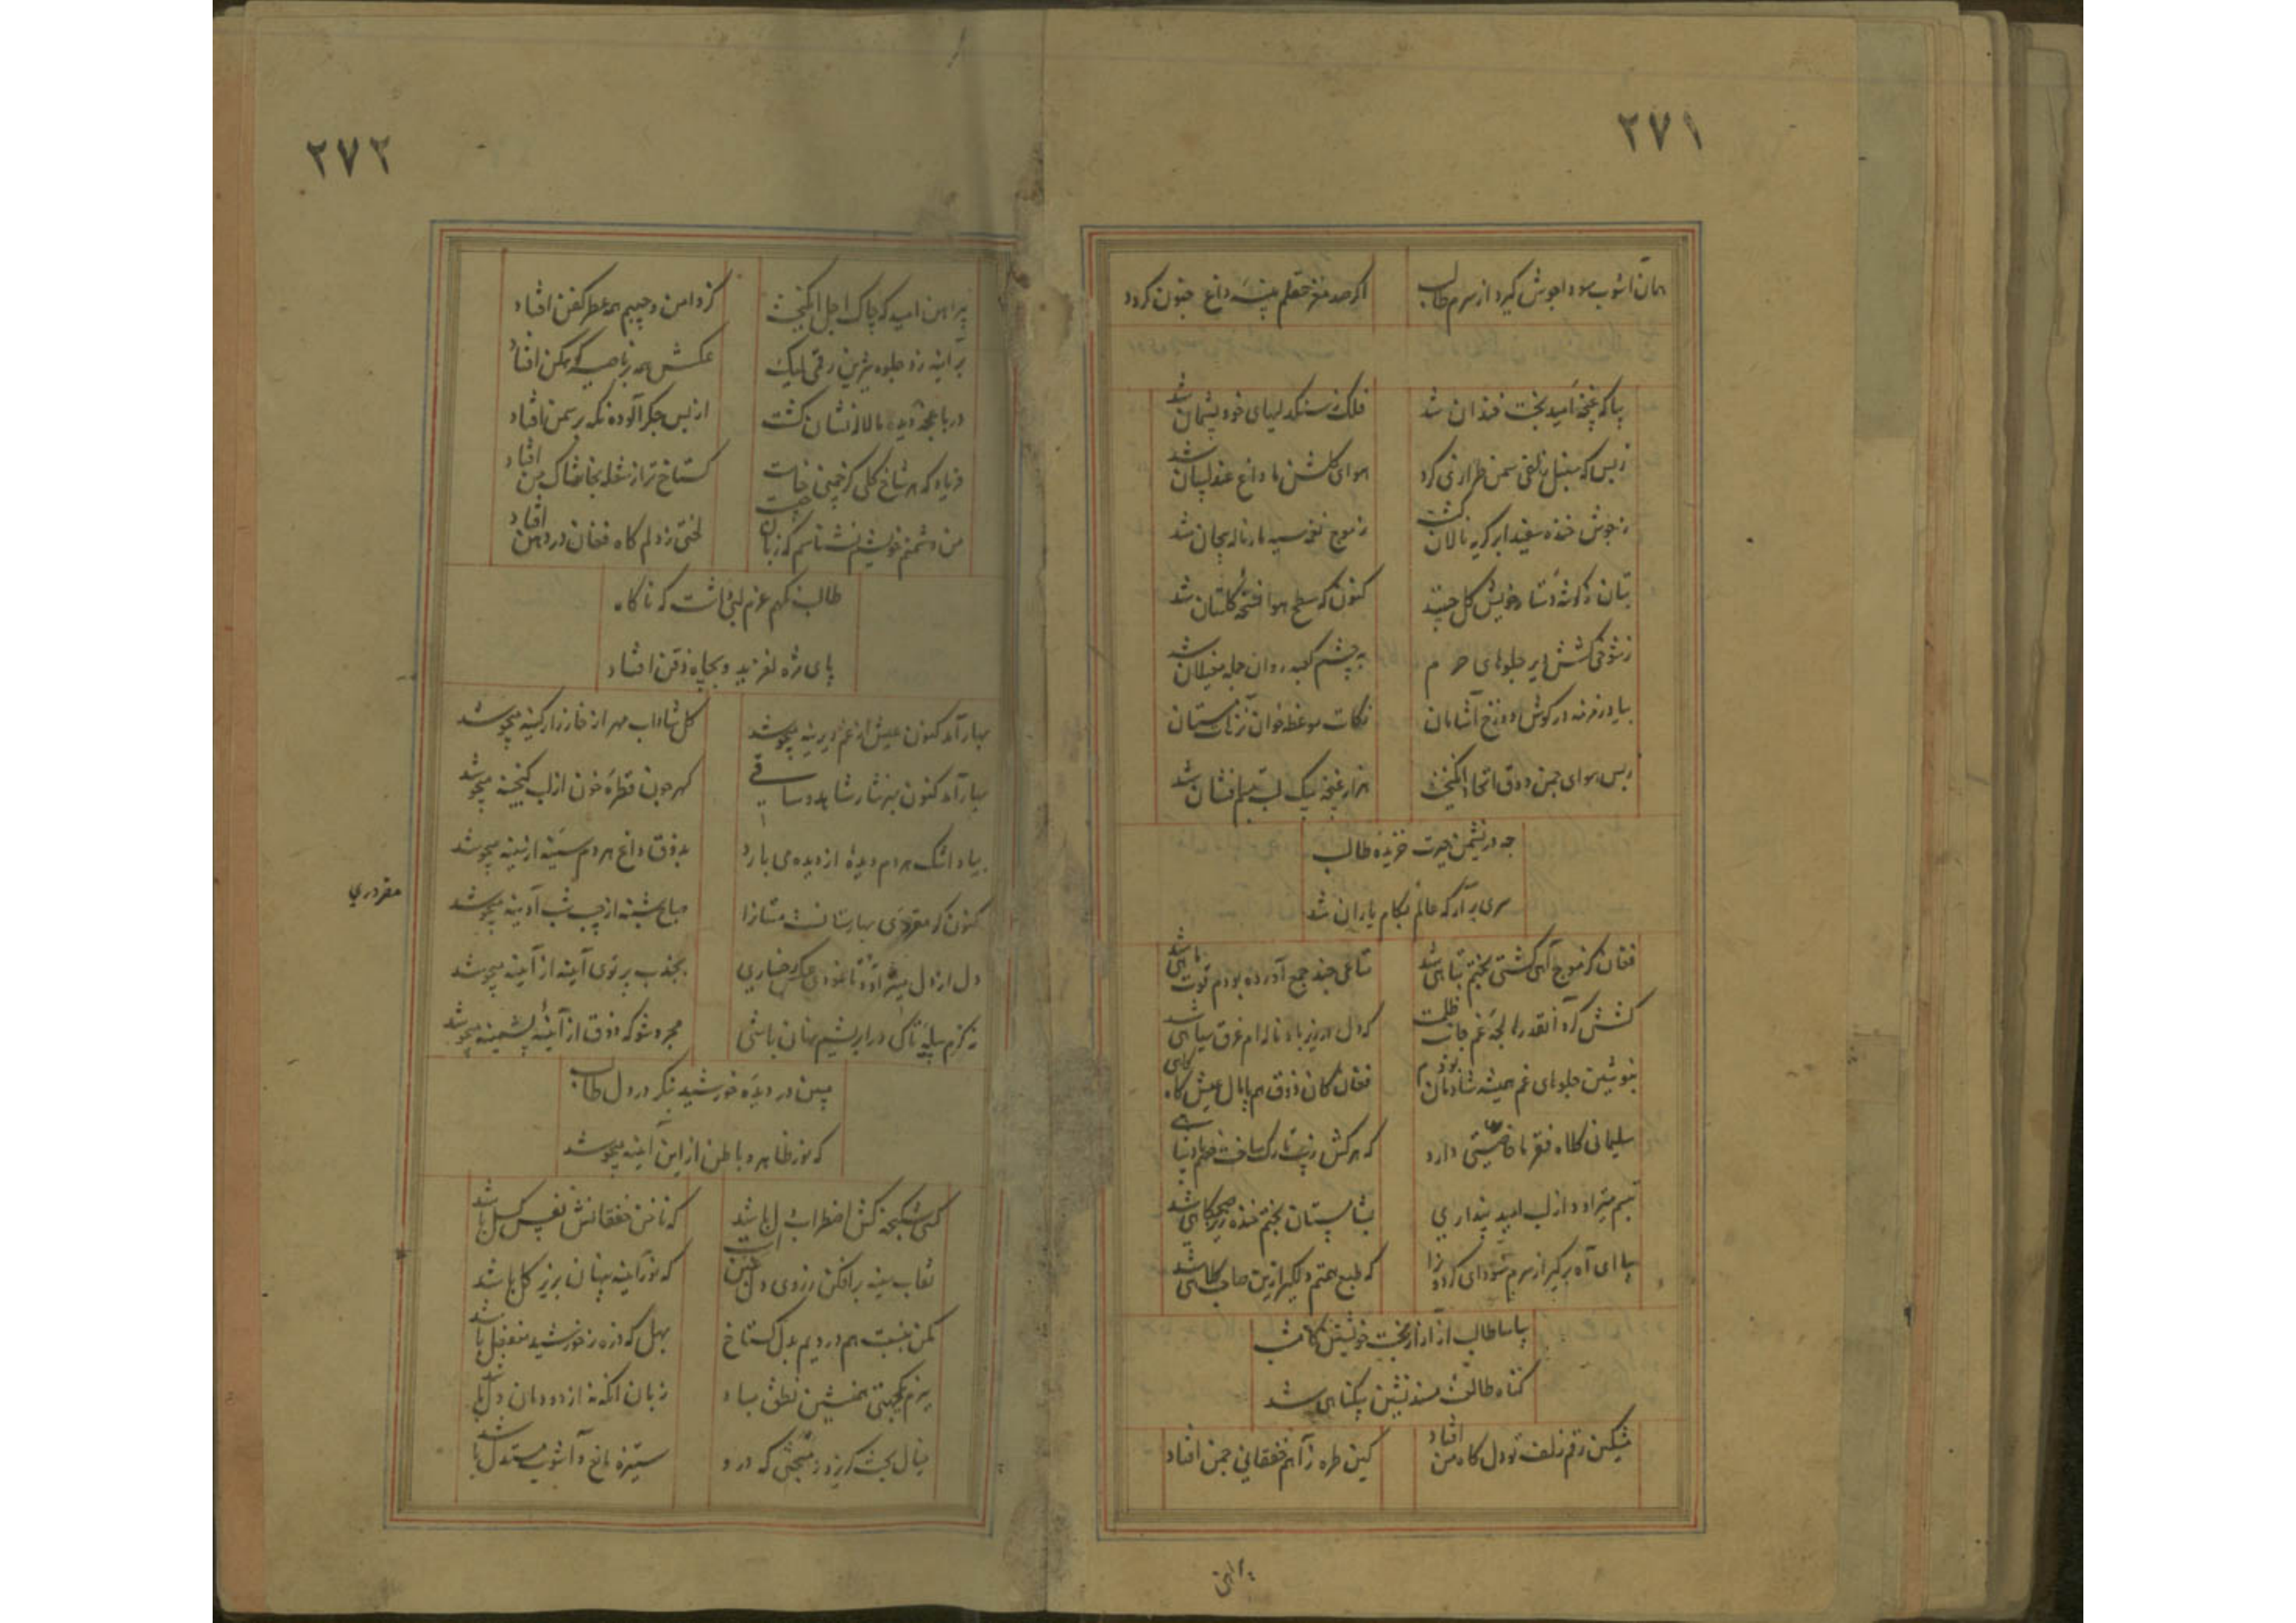 ۲۷۱
همان آشوب سودا جوش گیرد از سرم طالب
اگر صد مغز عقلم پنبهٔ داغ جنون گردد
بیا که غنچهٔ امید بخت خندان شد
فلک ز سنگدلیهای خود پشیمان شد
ز بس که سنبل زلفی سمن طرازی کرد
هوای گلشن ما داغ عندلیبان شد
ز جوش خنده سفید ابر گریه نالان گشت
ز موج نغمه سیه مار ناله بیجان شد
بتان ز گوشهٔ دستار خویش گل چینند
کنون که سطح هوا تختهٔ گلستان شد
ز شوخی کشش این جلوهای حرم
به چشم کعبه روان جمله مغیلان شد
بیا و زمزمه در گوش دوزخ آشامان
نکات موعظه خوان
ز بس هوای چمن ذوق اتحاد انگیخت
هزار غنچه بیک لب تبسم افشان شد
چه در نشیمن حیرت خزیدهٔ طالب
سری برآر که عالم بکام یاران شد
فغان کز موج آهی کشتی بختم تباهی شد
متاعی چند جمع آورده بودم قوت ماهی شد
کشش کرد آنقدرها لجهٔ غم جانب ظلمت
که دل لبریز باد ناله‌ام غرق سیاهی شد
بنوشین جلوهای غم همیشه شادمان بودم
فغان کان ذوق هم پامال عیش گاه گاهی شد
سلیمانی کلاه فقر ما خاصیتی دارد
که هر کش زیب تارک ساخت
تبسم میتراود از لب امید پنداری
شبستان بختم خنده ریز صبحگاهی شد
بیا ای آه برگیر از سرم سودای گردون را
که طبع همتم دلگیر ازین صاحب کلاهی شد
بیا طالب از آزار بخت خویشتن
گناه طالعت مسند نشین بیگناهی شد
مشکین رقم زلف تو در دل گاه من افتاد
کین طره ز آهم خفقانی چمن افتاد
پیراهن
۲۷۲
پیراهن امید که چاک اجل انگیخت
کز دامن و جیبم همه عطر کفن افتاد
بر آینه زد جلوهٔ شیرین رقمی لیک
عکسش همه بر ناصیهٔ کوهکن افتاد
در باغچهٔ دیده ما لاله نشان گشت
از بس جگر آلوده نگه بر سمن افتاد
فریاد که هر شاخ گلی کز چمنی خاست
گستاخ تر از شعله بخاشاک من افتاد
من دشمن خویشم نشناسم که زبان چیست
لختی ز دلم گاه فغان در دهن افتاد
طالب نگهم عزم لبی داشت که ناگاه
پای مژه لغزید و بچاه ذقن افتاد
بهار آمد کنون عیش از غم دیرینه میجوشد
گل شاداب مهر از خارزار کینه میجوشد
بهار آمد کنون بهر نثار شاهد و ساقی
گهر چون قطرهٔ خون از لب گنجینه میجوشد
بیاد اشک هر دم دیدهٔ از دیده می بارد
بذوق داغ هر دم سینهٔ از سینه میجوشد
کنون کز مقدردی بهارستانست مستانرا
صباح شنبه از جیب شب آدینه میجوشد
مقردری
دل از دل میتراود تا نمودی عکس رخساری
بجذب پرتوی آینه از آینه میجوشد
نه کرم پیله تا کی در ابریشم نهان باشی
مجرد شو که ذوق از آینهٔ پشمینه میجوشد
ببین در دیدهٔ خورشید بنگر در دل طالب
که نور ظاهر و باطن از این آینه میجوشد
کسی شکنجه کش اضطراب دل باشد
که ناخن خفقانش نفس گسل باشد
نقاب سینه برافکن ز روی دل
که نور آینه پنهان بزیر گل باشد
مکن بنسبت هم دردیم بدل گستاخ
بهل که ذره ز خورشید منفعل باشد
ببزم یکجهتی همنشین نطق مباد
زبان اگر نه از دودمان دل باشد
خیال بخت گریزد ز منجمی که درو
ستیزه مانع و آشوب مستدل باشد